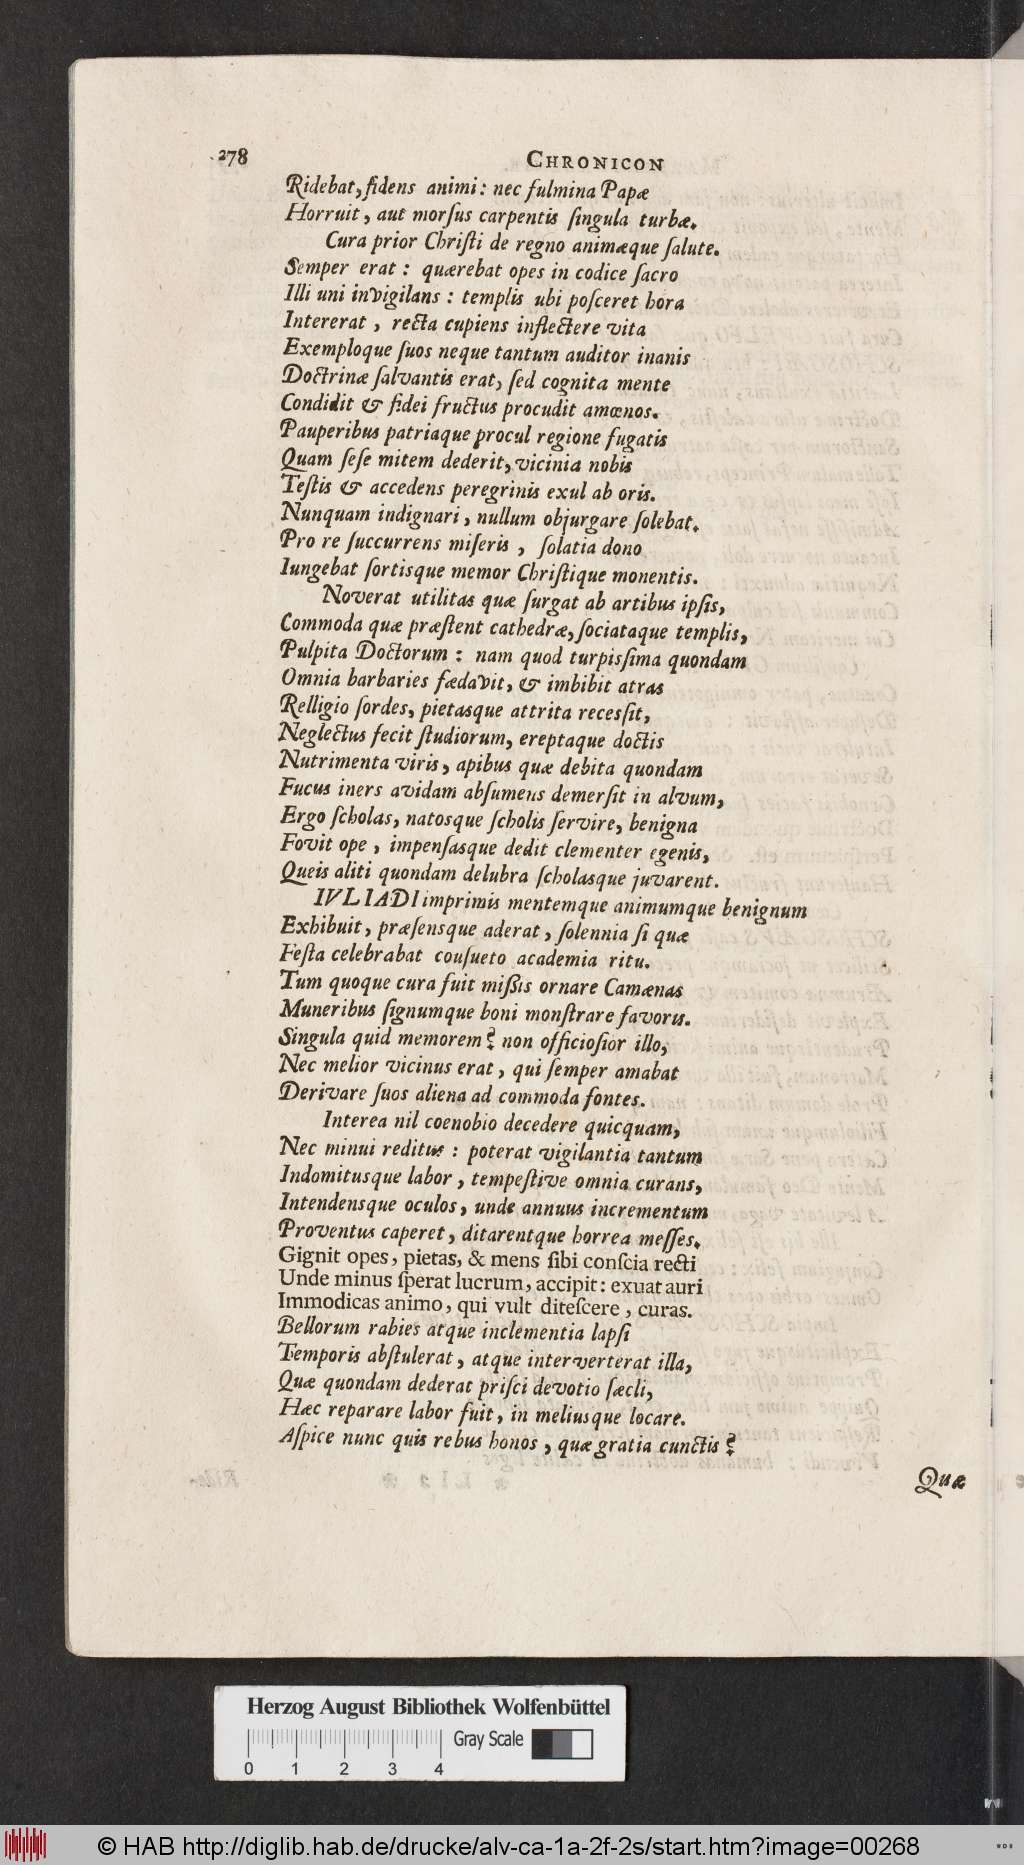 278 CHRONICON
Ridebat, fidens animi: nec fulmina Papæ
Horruit, aut morſus carpentis ſingula turbæ.
Cura prior Chriſti de regno animæque ſalute.
Semper erat: quærebat opes in codice ſacro
Illi uni invigilans: templis ubi poſceret hora
Intererat, recta cupiens inflectere vita
Exemploque ſuos neque tantum auditor inanis
Doctrinæ ſalvantis erat, ſed cognita mente
Condidit & fidei fructus procudit amœnos.
Pauperibus patriaque procul regione fugatis
Quam ſeſe mitem dederit, vicinia nobis
Teſtis & accedens peregrinis exul ab oris.
Nunquam indignari, nullum objurgare ſolebat.
Pro re ſuccurrens miſeris, ſolatia dono
Iungebat ſortisque memor Chriſtique monentis.
Noverat utilitas quæ ſurgat ab artibus ipſis,
Commoda quæ præſtent cathedræ, ſociataque templis,
Pulpita Doctorum: nam quod turpisſima quondam
Omnia barbaries fædavit, & imbibit atras
Relligio ſordes, pietasque attrita recesſit,
Neglectus fecit ſtudiorum, ereptaque doctis
Nutrimenta viris, apibus quæ debita quondam
Fucus iners avidam abſumens demerſit in alvum,
Ergo ſcholas, natosque ſcholis ſervire, benigna
Fovit ope, impenſasque dedit clementer egenis,
Queis aliti quondam delubra ſcholasque juvarent.
IVLIADI imprimis mentemque animumque benignum
Exhibuit, præſensque aderat, ſolennia ſi quæ
Feſta celebrabat conſueto academia ritu.
Tum quoque cura fuit miſsis ornare Camænas
Muneribus ſignumque boni monſtrare favoris.
Singula quid memorem? non officioſior illo,
Nec melior vicinus erat, qui ſemper amabat
Derivare ſuos aliena ad commoda fontes.
Interea nil coenobio decedere quicquam,
Nec minui reditus: poterat vigilantia tantum
Indomitusque labor, tempeſtive omnia curans,
Intendensque oculos, unde annuus incrementum
Proventus caperet, ditarentque horrea meſſes.
Gignit opes, pietas, & mens ſibi conſcia recti
Unde minus ſperat lucrum, accipit: exuat auri
Immodicas animo, qui vult diteſcere, curas.
Bellorum rabies atque inclementia lapſi
Temporis abſtulerat, atque interverterat illa,
Quæ quondam dederat priſci devotio ſæcli,
Hæc reparare labor fuit, in meliusque locare.
Aſpice nunc quis rebus honos, quæ gratia cunctis?
Quæ
Herzog August Bibliothek Wolfenbüttel
Gray Scale
0 1 2 3 4
© HAB http://diglib.hab.de/drucke/alv-ca-1a-2f-2s/start.htm?image=00268